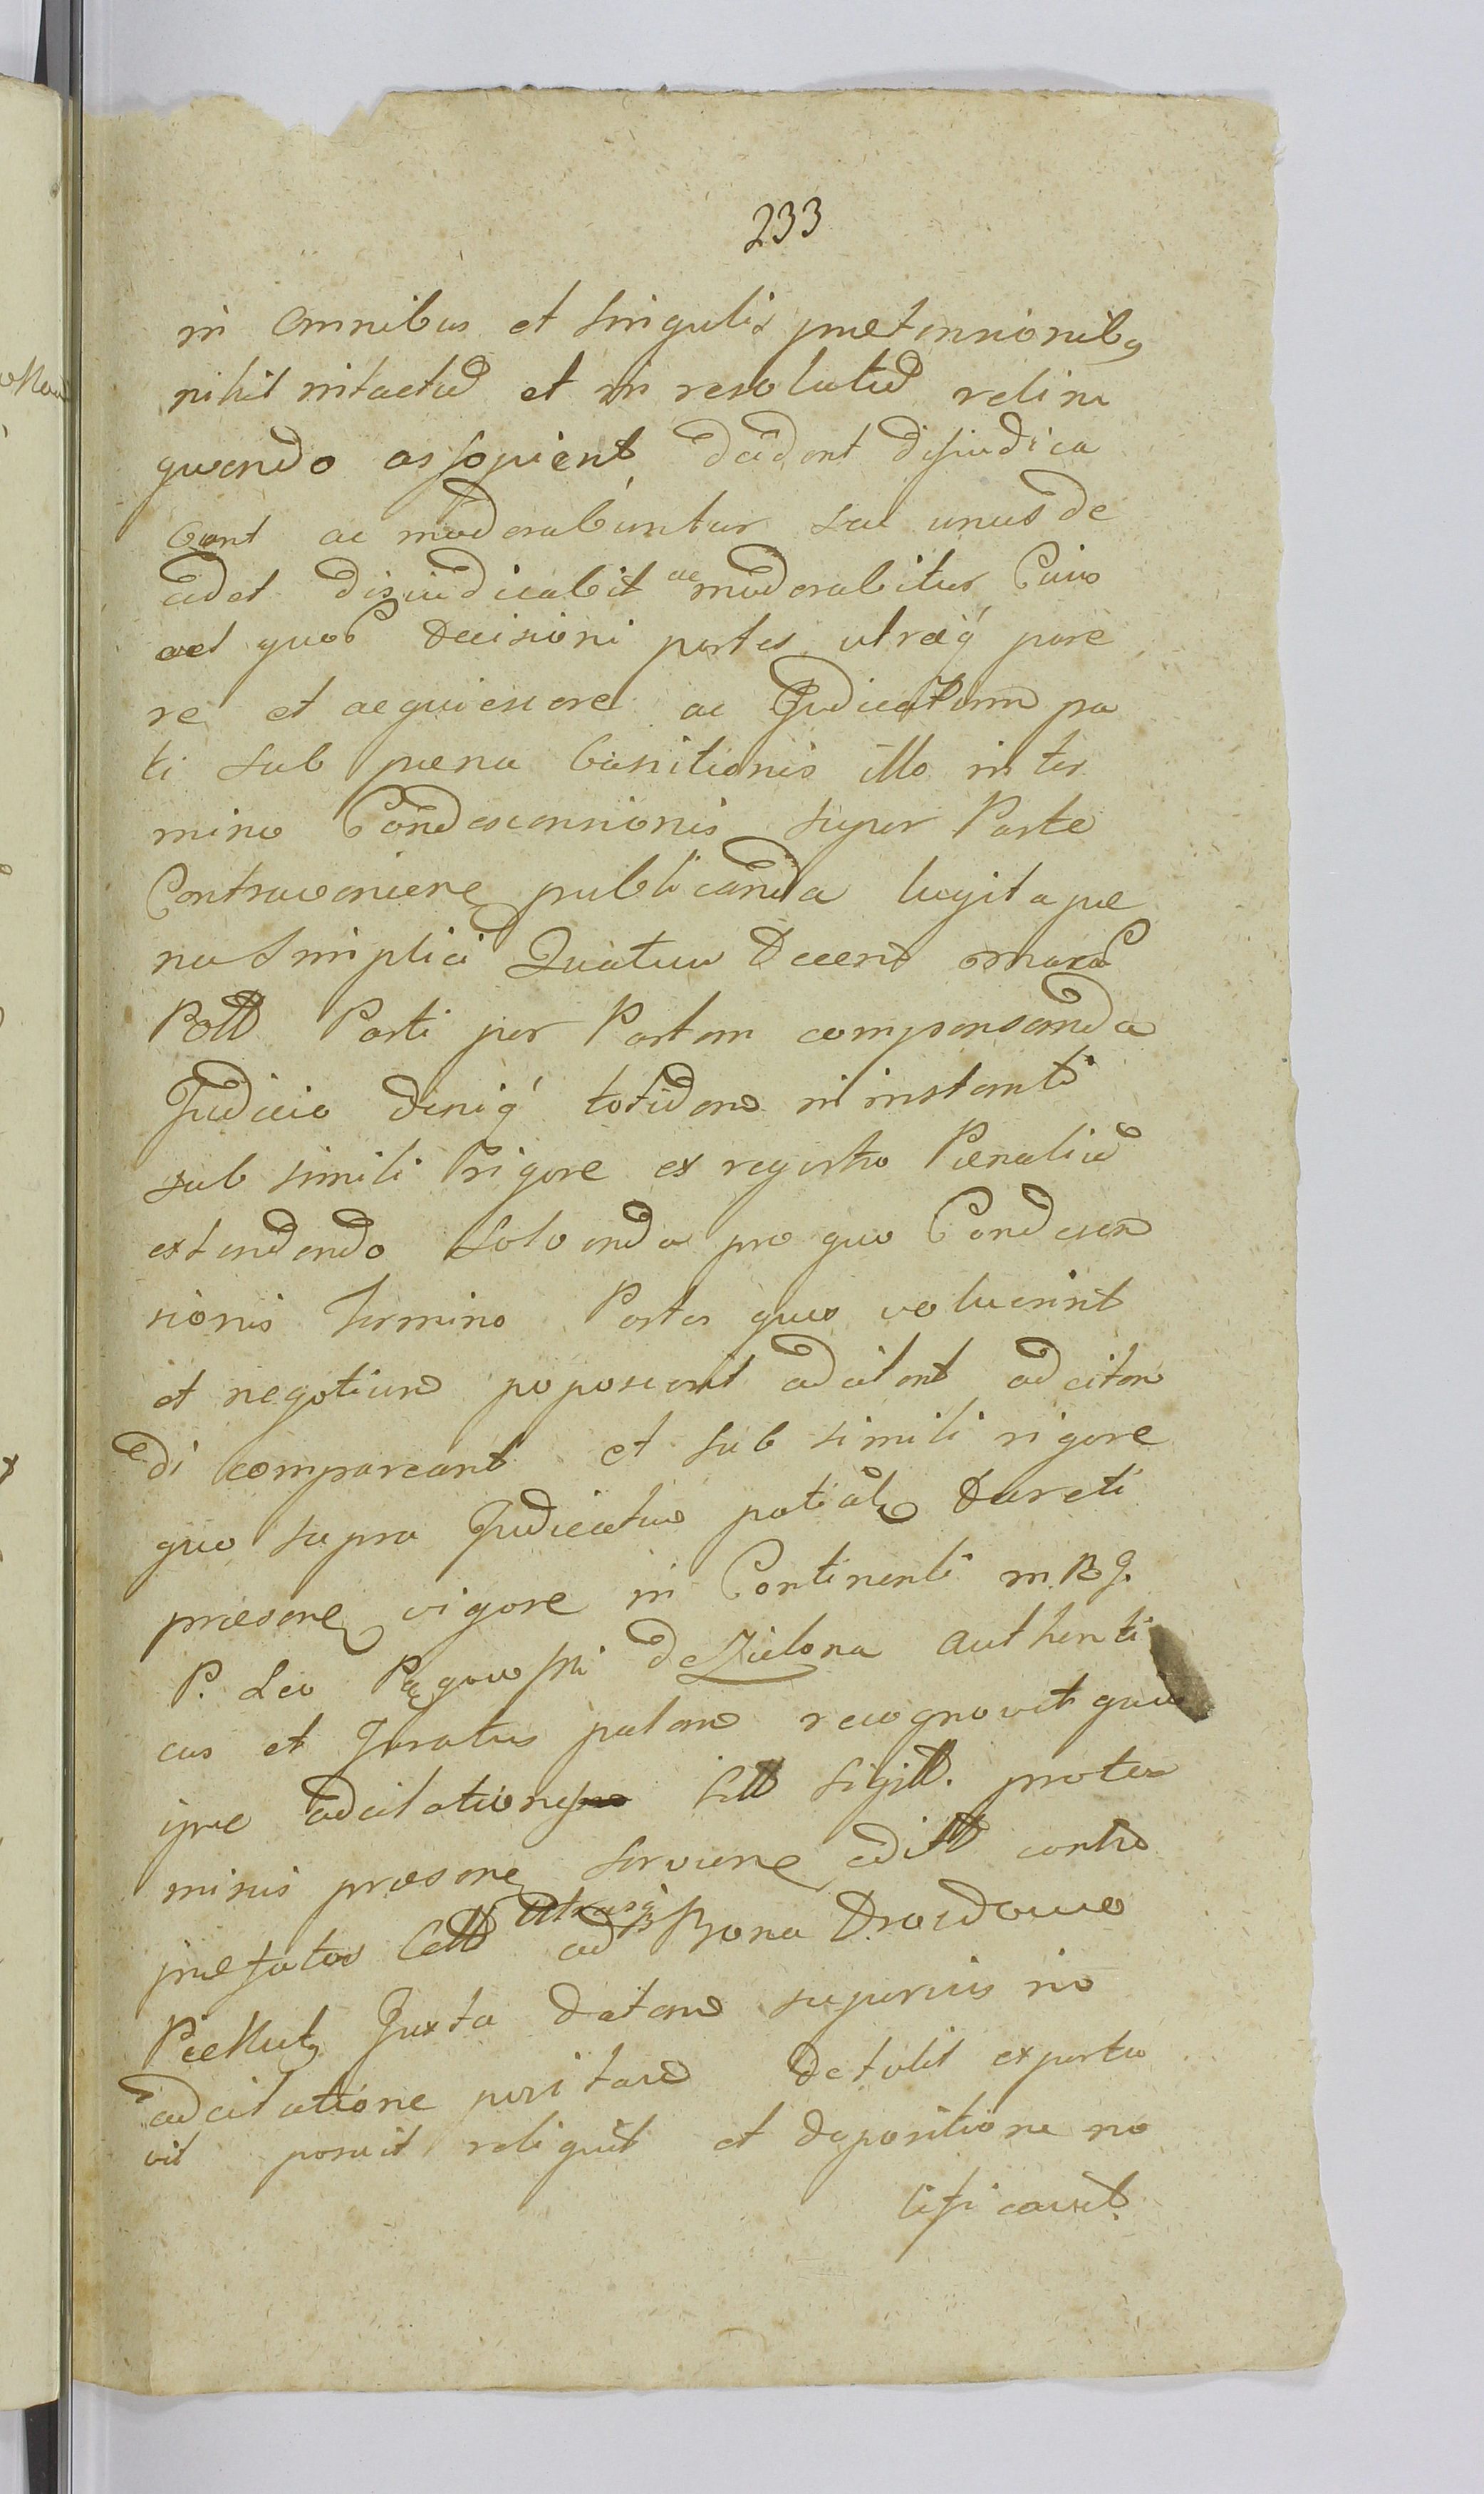 233
in omnibus et singulis praetensionibq
nihil intactu et in resolutu relin
quendo assopient decident dijudica
bunt ac moderabuntur seu unus de
cidet dijudicabit ac moderabitur Cuius
vel quor decisioni partes utraeq pare
re et acquiescere ac Judicatum pa
ti sub paena banitionis illo in ter
mino Condescensionis super Parte
Contravenien publicanda lucyta pae
na simplici Quatuor Decem marcar
Poll Parti per Partem compensanda
Judicio deniq totidem in instanti
sub simili rigore ex regestro Paenaliu
extendendo solvenda pro quo Condescen
sionis termino Partes quos voluerint
et negotium poposcerit adcitent adcitan
di compareant et sub simili rigore
quo supra Judicatum patiant Decreti
praesen vigore in Continenti m. R J.
P. Leo de Zielona authenti
cus et Juratus palam recognovit quia
ipse adcitationem sill sigill. pro ter
minis praesen servien edill contra
praefatos Coll utrasq ad Bona Drozdowo
Juxta datam superius in
adcitatione positam detulit exporta
vit posuit reliquit et depositione no
tificavit.